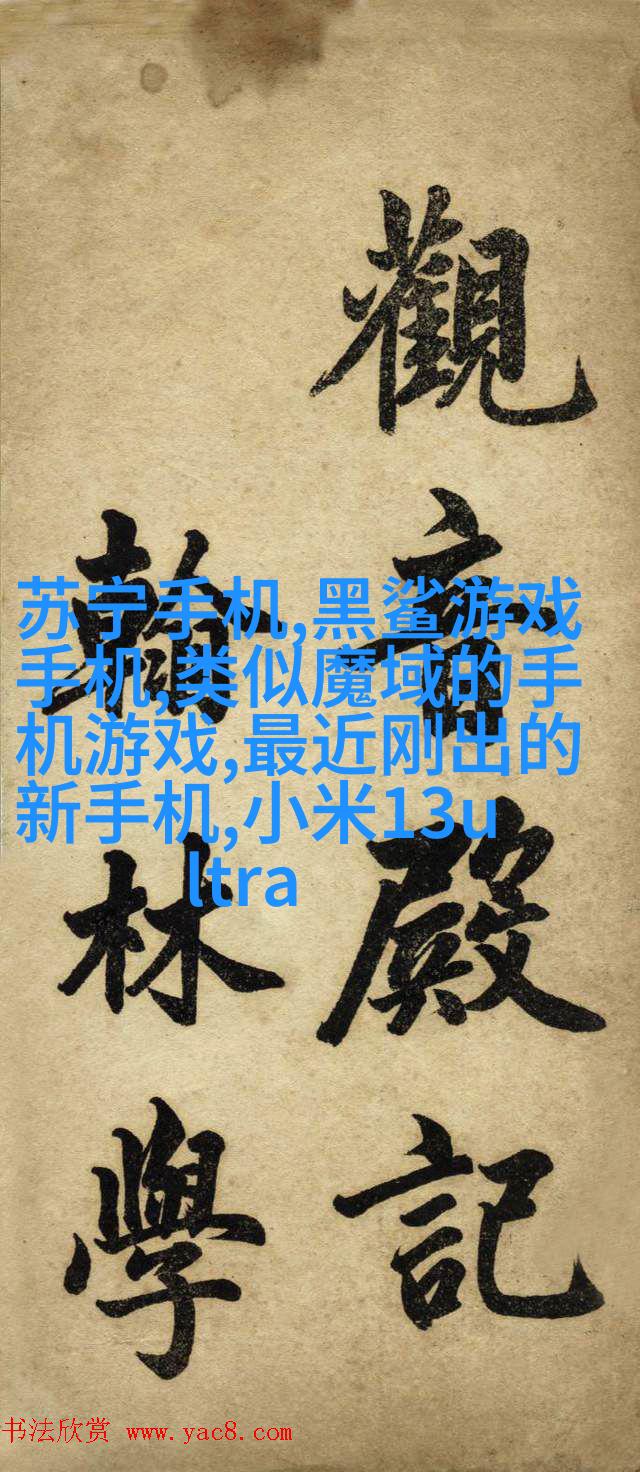 觀音殿記
翰林學
苏宁手机,黑鲨游戏
手机,类似魔域的手
机游戏,最近刚出的
新手机,小米13u
ltra
书法欣赏 www.yac8.com